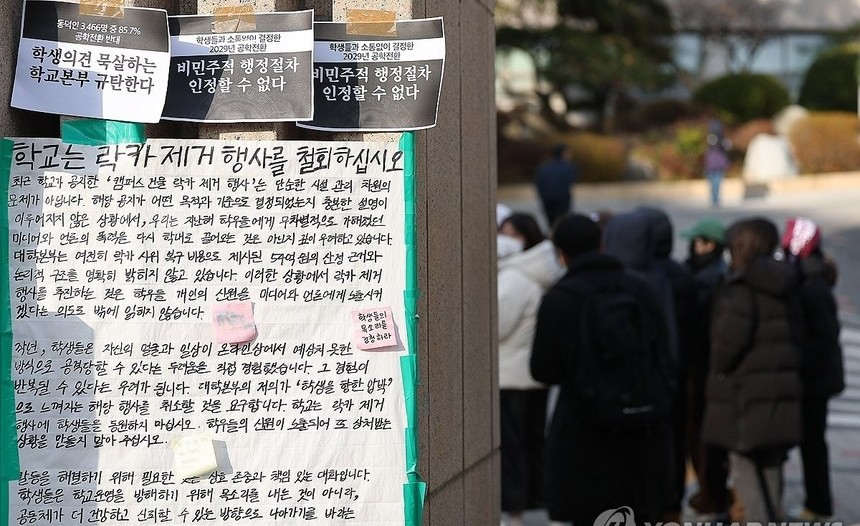 동덕인 3,466명 중 85.7%
공학전환 반대
학생의견 묵살하는
학교본부 규탄한다
학생들과 소통없이 결정한
2029년 공학전환
비민주적 행정절차
인정할 수 없다
학생들과 소통없이 결정한
2029년 공학전환
비민주적 행정절차
인정할 수 없다
학교는 락카 제거 행사를 철회하십시오
최근 학교가 공지한 '캠퍼스 건물 락카 제거 행사'는 단순한 시설 관리 차원의
문제가 아닙니다. 해당 공지가 어떤 목적과 기준으로 결정되었는지 충분한 설명이
이루어지지 않은 상황에서, 우리는 지난해 학우들에게 무차별적으로 가해졌던
미디어와 언론의 폭력을 다시 학내로 끌어오는 것은 아닌지 깊이 우려하고 있습니다.
대학본부는 여전히 락카 시위 복구 비용으로 제시된 54억 원의 산정 근거와
논리적 구조를 명확히 밝히지 않고 있습니다. 이러한 상황에서 락카 제거
행사를 추진하는 것은 학우들 개인의 신원을 미디어와 언론에게 노출시키
겠다는 의도로 밖에 읽히지 않습니다.
학생들의
목소리를
경청하라
작년, 학생들은 자신의 얼굴과 일상이 온라인상에서 예상치 못한
방식으로 공격당할 수 있다는 두려움을 직접 경험했습니다. 그 경험이
반복될 수 있다는 우려가 됩니다. 대학본부의 제의가 '학생을 향한 압박'
으로 느껴지는 해당 행사를 취소할 것을 요구합니다. 학교는 락카 제거
행사에 학생들을 동원하지 마십시오. 학우들의 신원이 노출되어 또 상처받는
상황을 만들지 말아 주십시오.
갈등을 해결하기 위해 필요한 것은 상호 존중과 책임 있는 대화입니다.
학생들은 학교운영을 방해하기 위해 목소리를 내는 것이 아니라,
공동체가 더 건강하고 신뢰할 수 있는 방향으로 나아가기를 바라는